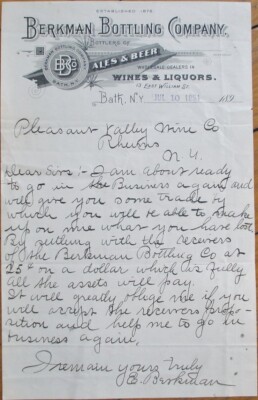 ESTABLISHED 1876.
BERKMAN BOTTLING COMPANY,
BOTTLERS OF
ALES & BEER
WHOLESALE DEALERS IN
WINES & LIQUORS.
EAST WILLIAM ST.
BERKMAN BOTTLING
BATH, N.Y.
Bath, N.Y. JUL 10 1897 189
Pleasant Valley Wine Co
Rheims
N. Y.
Dear Sirs:- I am about ready
to go in the Business again and
will give you some trade by
which you will be able to make
up on me what you have lost
By settling with the receivers
of the Berkman Bottling Co at
25¢ on a dollar which is fully
all the assets will pay.
It will greatly oblige me if you
will accept the receivers propo-
sition and help me to go in
business again,
I remain yours truly
B. Berkman